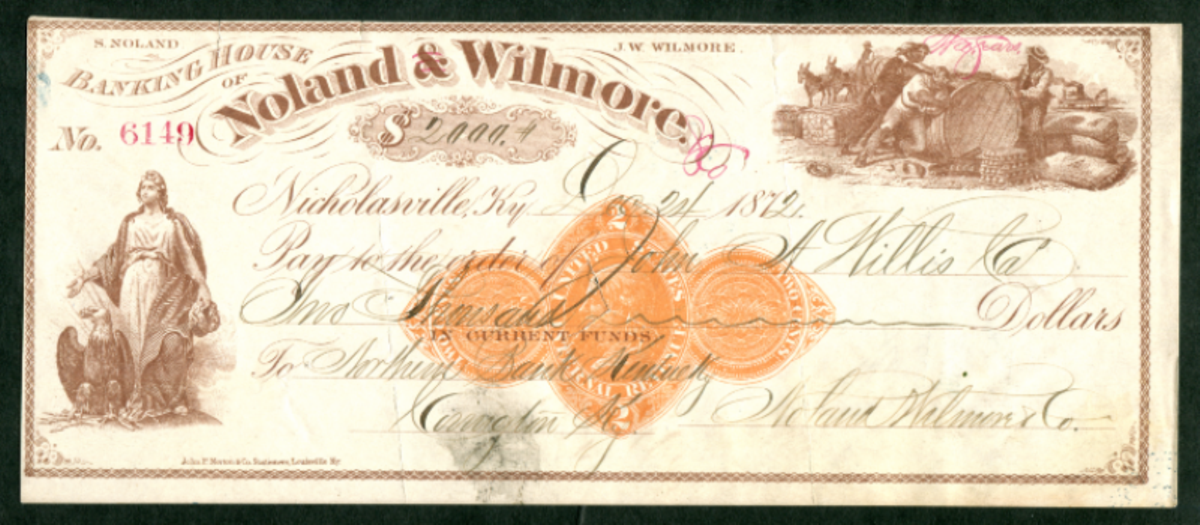 S. NOLAND
J. W. WILMORE.
BANKING HOUSE
OF
Noland & Wilmore.
& Co
No. 6149
$ 2000.
Nicholasville, Ky. Dec 24 1872.
Pay to the order of John A Willis Ca
Two Thousand Dollars
IN CURRENT FUNDS
To Northern Bank Kentucky
Covington Ky Noland Wilmore & Co.
UNITED STATES
INTERNAL REVENUE
2
2
TWO CENTS
John P. Morton & Co. Stationers, Louisville Ky.